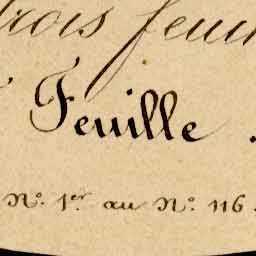 trois feuil
Feuille .
N.º 1.er au N.º 116.